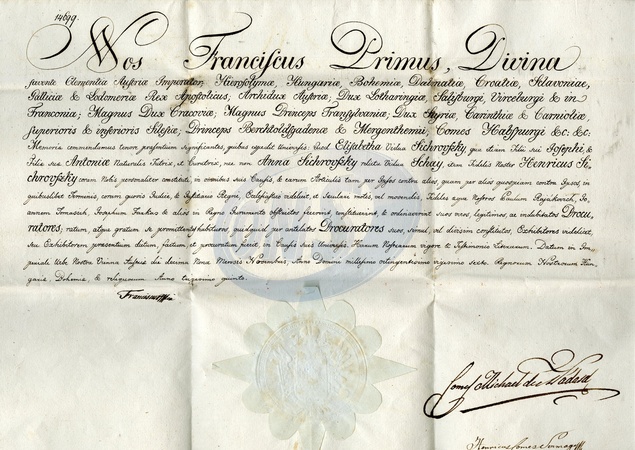 14699.
Nos Franciscus Primus, Divina
favente Clementia Austriæ Imperator; Hierosolymæ, Hungariæ, Bohemiæ, Dalmatiæ, Croatiæ, Sclavoniæ,
Galliciæ & Lodomeriæ Rex Apostolicus; Archidux Austriæ; Dux Lotharingiæ, Salisburgi, Virceburgi & in
Franconia; Magnus Dux Cracoviæ; Magnus Princeps Transylvaniæ; Dux Styriæ, Carinthiæ & Carnioliæ
superioris & inferioris Silesiæ; Princeps Berchtoldsgadenæ & Mergenthemii; Comes Habspurgi &c: &c:
Memoriæ commendamus tenore præsentium significantes, quibus expedit universis: Quod Elisabetha Vidua Sichrovszky, qua etiam Filii sui Josephi, &
Filiæ suæ Antoniæ Naturalis Tutrix, et Curatrix, nec non Anna Sichrovszky relicta Vidua Schay, item Fidelis Noster Henricus Si-
chrovszky coram Nobis personaliter constituti, in omnibus suis Causis, & earum Articulis tam per Ipsos contra alios, quam per alios quospiam contra Ipsos, in
quibuslibet Terminis, coram quovis Judice, & Justitiario Regni, Ecclesiastico videlicet, et Sæculari motis, vel movendis, Fideles æque Nostros Paulum Rajnikovich, Jo-
annem Tomassek, Josephum & alios in Regni Juramento
ratores; ratum, atque gratum se promittentes habituros, quidquid per antelatos Procuratores suos, simul, vel divisim constitutos, Exhibitores videlicet,
seu Exhibitorem præsentium dictum, factum, et procuratum fuerit, in Causis suis Universis. Harum Nostrarum vigore & Testimonio Literarum. Datum in Im-
periali Urbe Nostra Vienna Austriæ die decima Nona Mensis Novembris, Anno Domini millesimo octingentesimo vigesimo sexto. Regnorum Nostrorum Hun-
gariæ, Bohemiæ & reliquorum Anno trigesimo quinto.
Franciscus
Comes Michael de Nádasd
Henricus Comes